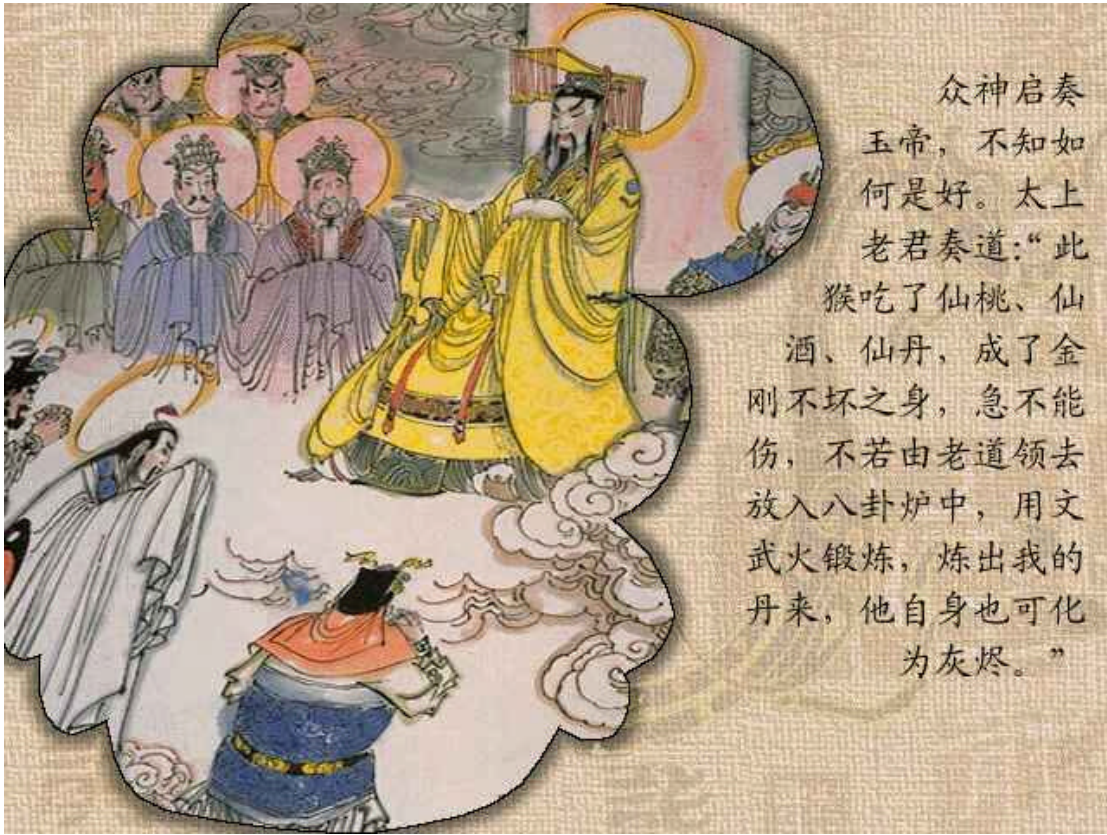 众神启奏
玉帝，不知如
何是好。太上
老君奏道:“此
猴吃了仙桃、仙
酒、仙丹，成了金
刚不坏之身，急不能
伤，不若由老道领去
放入八卦炉中，用文
武火锻炼，炼出我的
丹来，他自身也可化
为灰烬。”